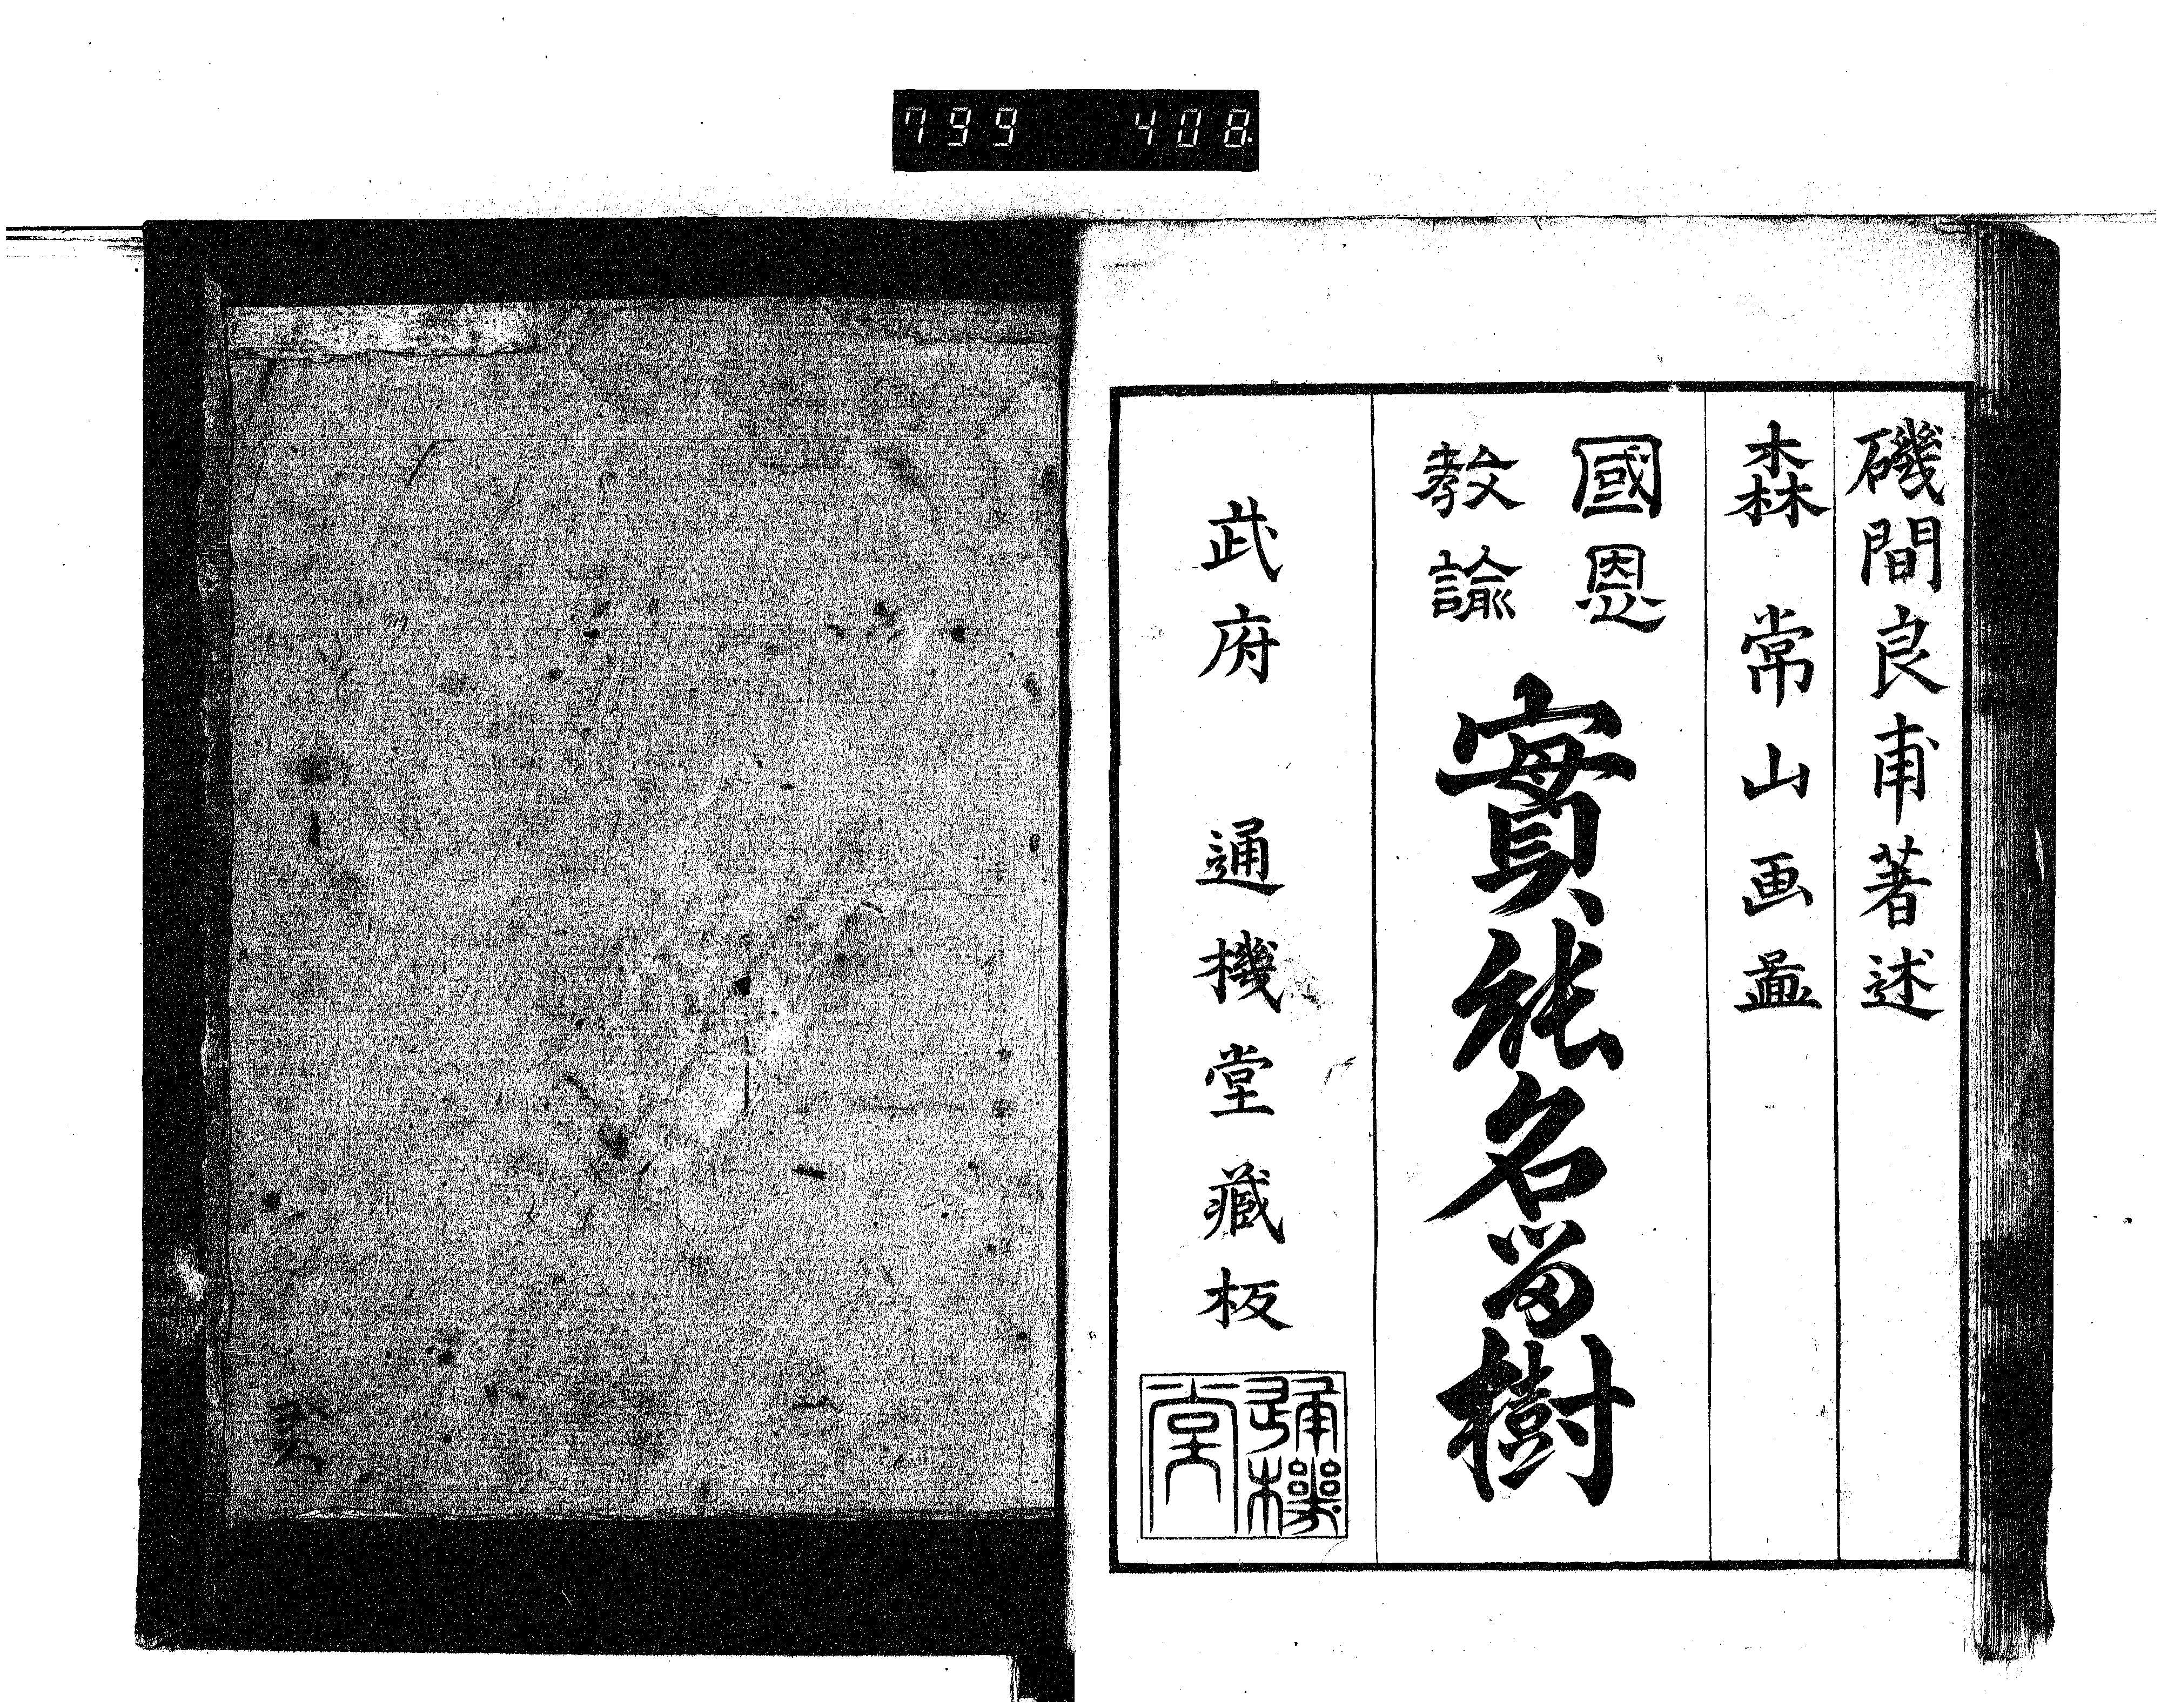 799 408
磯間良甫著述
森常山画
國恩
教諭
實能名畄樹
武府 通機堂藏板
通機堂